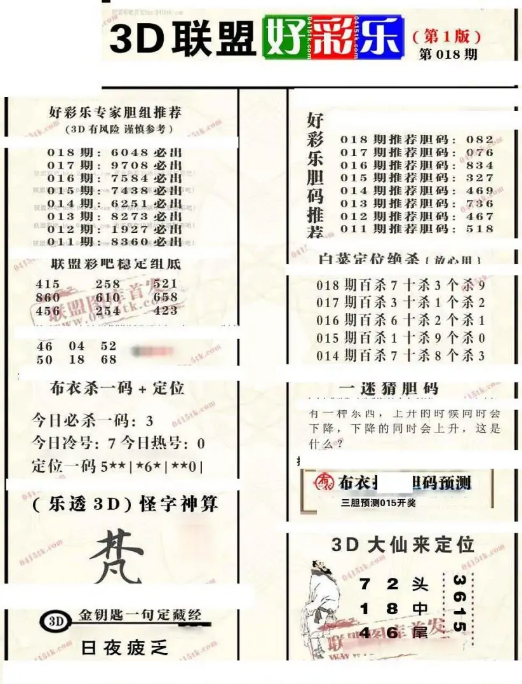 3D联盟好彩乐(第1版)
第018期
好彩乐专家胆组推荐
(3D有风险 谨慎参考)
018期:6048必出
017期:9708必出
016期:7584必出
015期:7438必出
014期:6251必出
013期:8273必出
012期:1927必出
011期:8360必出
联盟彩吧稳定组底
415 258 521
860 610 658
456 254 423
46 04 52
50 18 68
布衣杀一码+定位
今日必杀一码:3
今日冷号:7 今日热号:0
定位一码5**|*6*|**0|
(乐透3D)怪字神算
梵
3D 金钥匙一句定藏经
日夜疲乏
好彩乐胆码推荐
018期推荐胆码:082
017期推荐胆码:076
016期推荐胆码:834
015期推荐胆码:327
014期推荐胆码:469
013期推荐胆码:736
012期推荐胆码:467
011期推荐胆码:518
白菜定位绝杀(放心用)
018期百杀7十杀3个杀9
017期百杀3十杀1个杀2
016期百杀6十杀2个杀1
015期百杀1十杀9个杀0
014期百杀7十杀8个杀3
一迷猜胆码
有一种东西,上升的时候同时会
下降,下降的同时会上升,这是
什么?
布衣 胆码预测
三胆预测015开奖
3D大仙来定位
7 2 头
1 8 中
4 6 尾
3615
0415tk.com
联盟图库首发